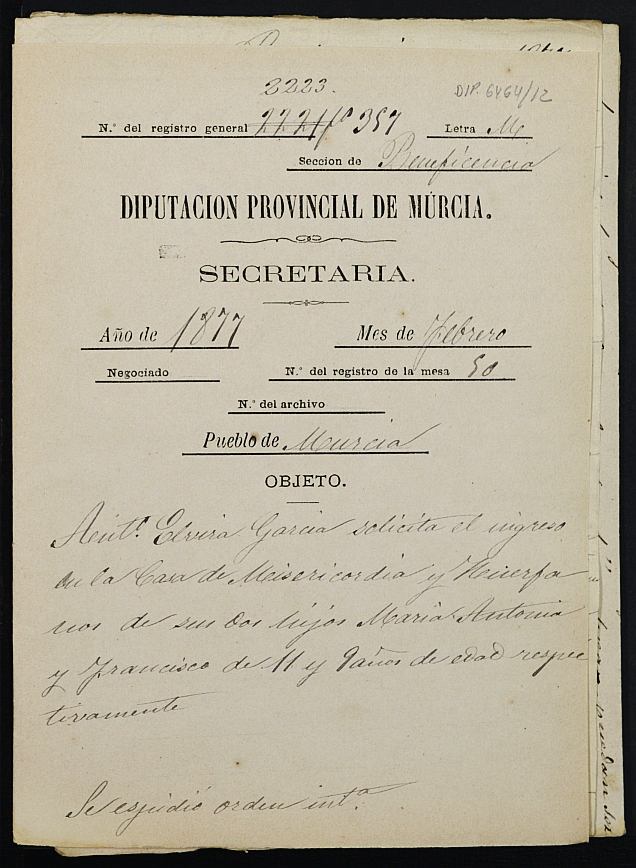 2223.
DIP. 6464/12
N.º del registro general 2221 fº 357 Letra M
Seccion de Beneficencia
DIPUTACION PROVINCIAL DE MÚRCIA.
SECRETARIA.
Año de 1877 Mes de Febrero
Negociado N.º del registro de la mesa 50
N.º del archivo
Pueblo de Murcia
OBJETO.
Antª. Elvira Garcia solicita el ingreso
en la Casa de Misericordia y Huerfa
nos de sus dos hijos Maria Antonia
y Francisco de 11 y 9 años de edad respec
tivamente
Se espidió orden intª.